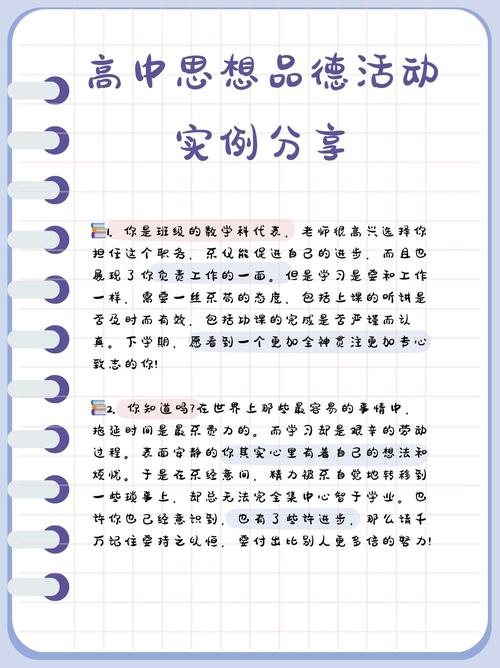 高中思想品德活动
实例分享
1. 你是班级的数学科代表，老师很高兴选择你
担任这个职务，不仅能促进自己的进步，而且也
展现了你负责工作的一面。但是学习是要和工作
一样，需要一丝不苟的态度，包括上课的听讲是
否及时而有效，包括功课的完成是否严谨而认
真。下学期，愿看到一个更加全神贯注更加专心
致志的你！
2. 你知道吗？在世界上那些最容易的事情中，
拖延时间是最不费力的。而学习却是艰辛的劳动
过程。表面安静的你其实心里有着自己的想法和
烦忧。于是在不经意间，精力被不自觉地转移到
一些琐事上，却总无法完全集中心智于学业。也
许你也已经意识到，也有了些许进步，那么请千
万记住要持之以恒，要付出比别人更多倍的努力！